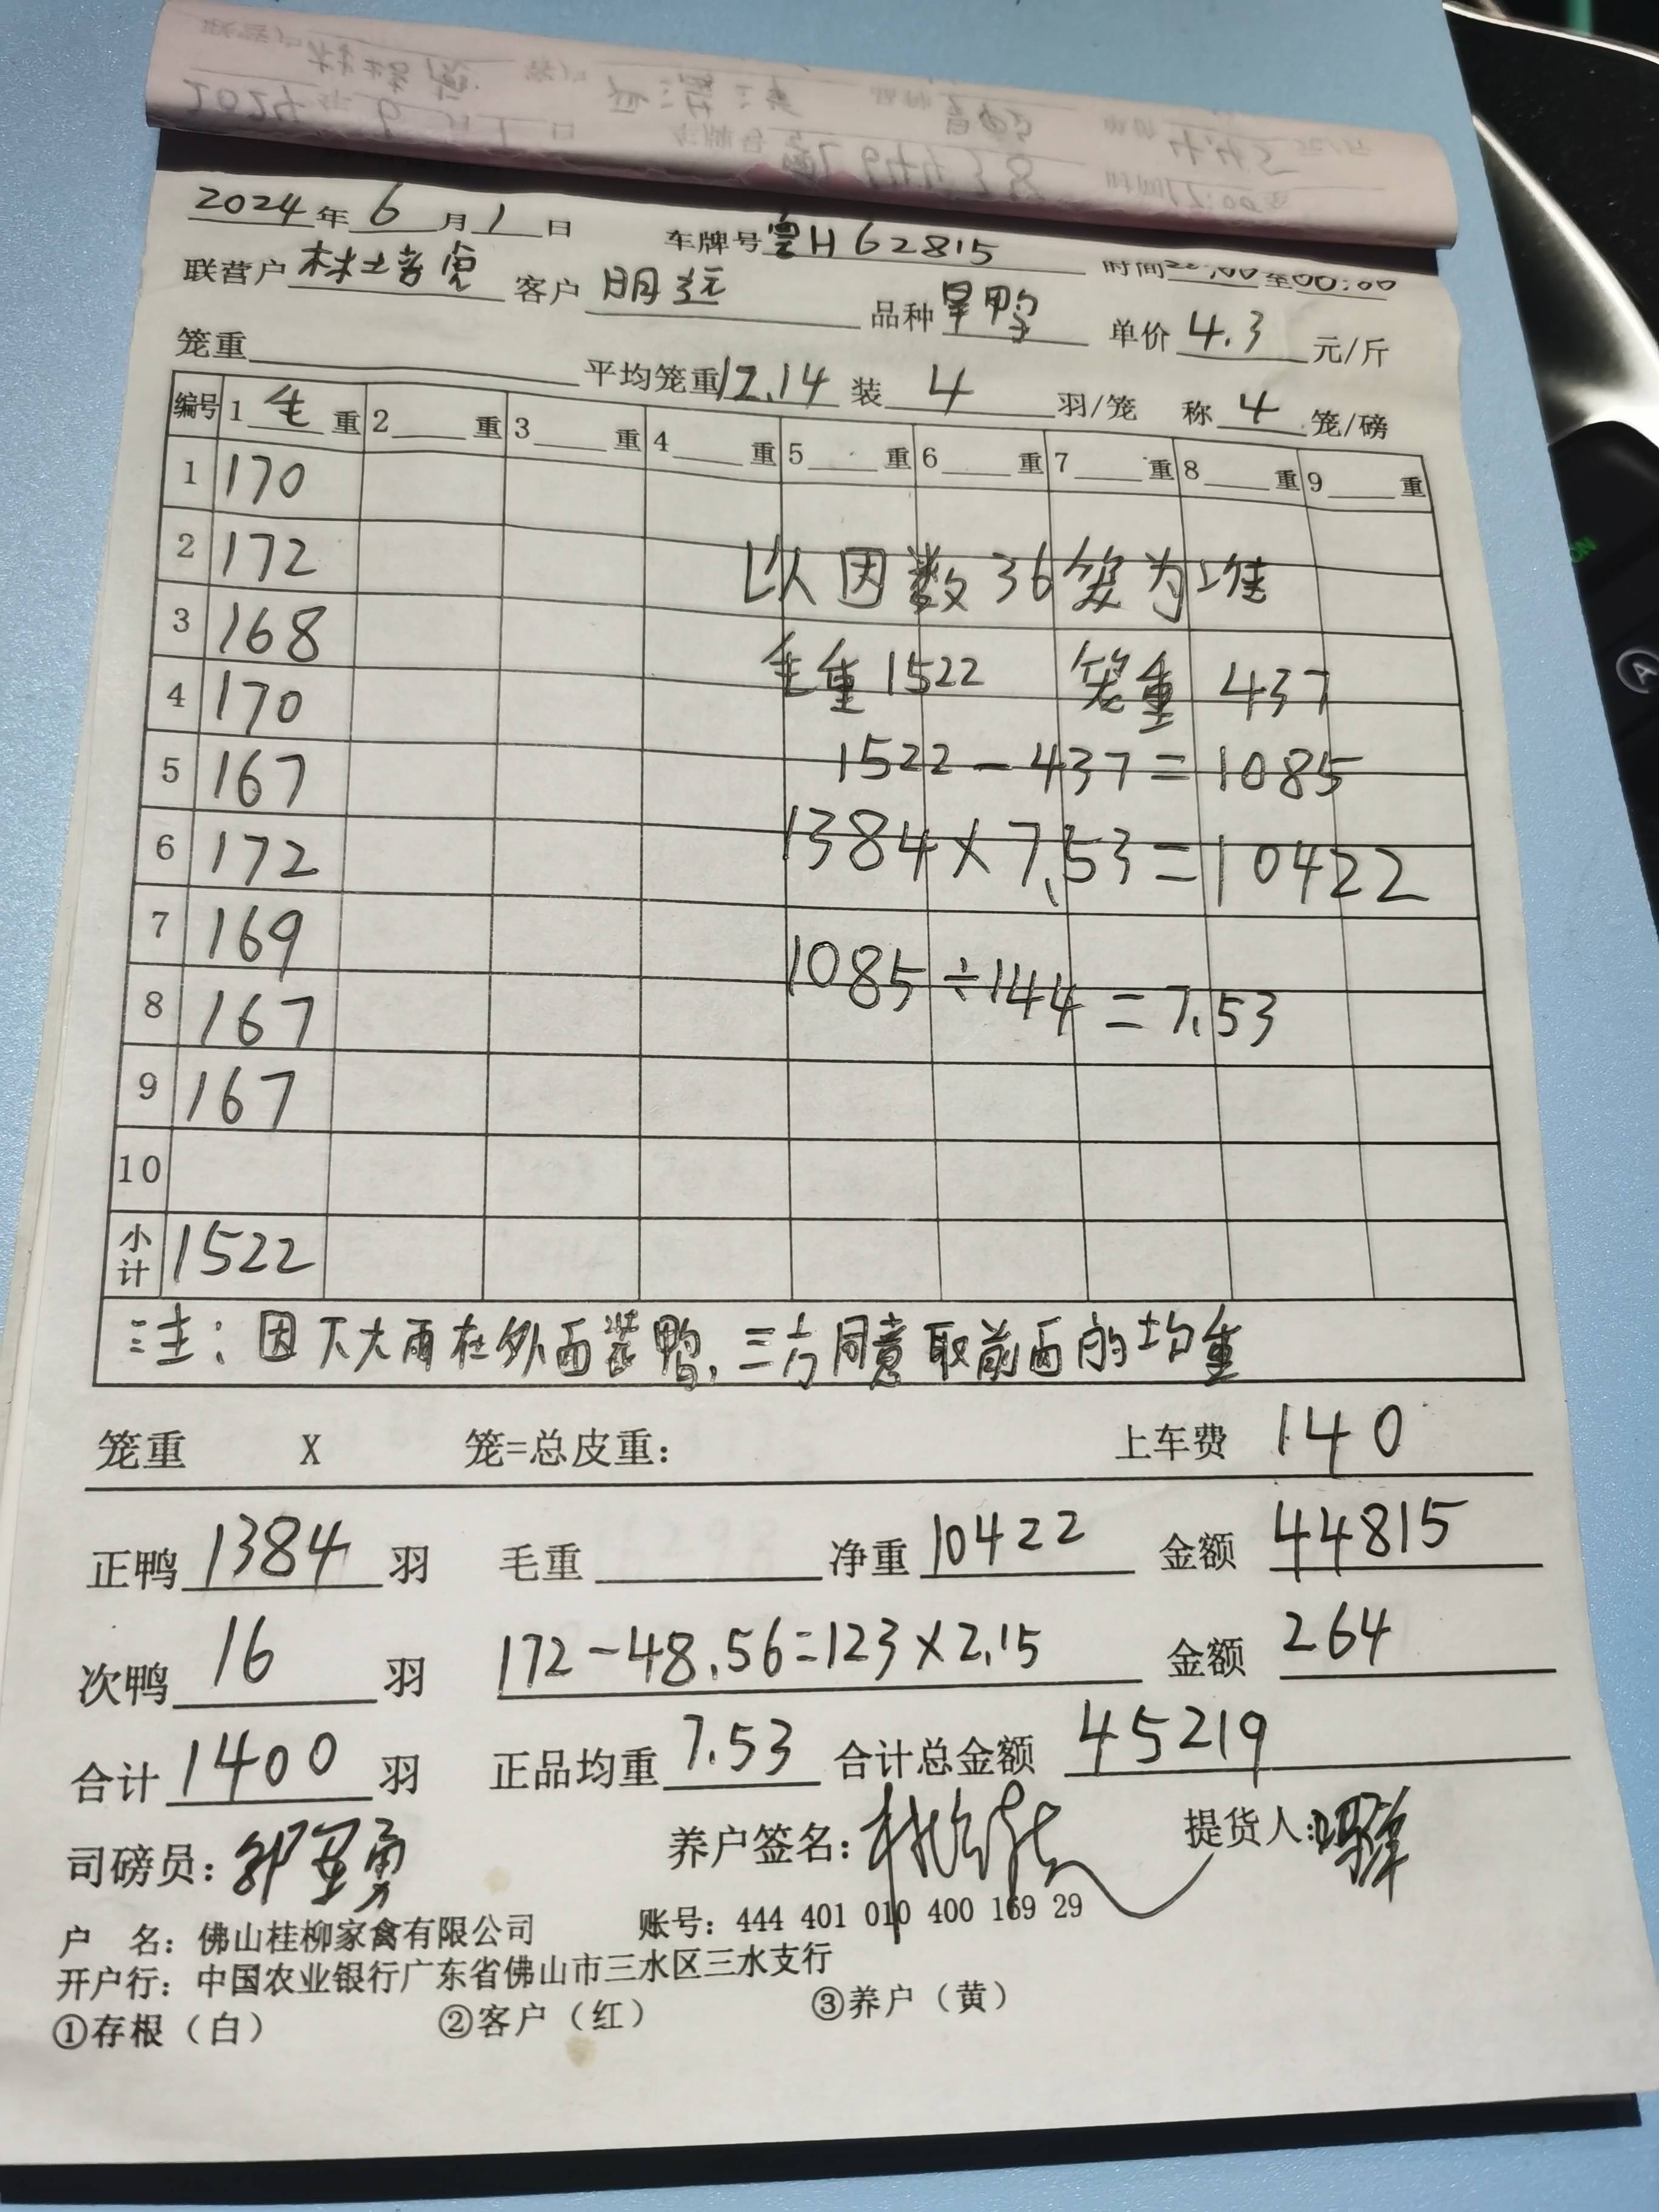 2024年6月1日 车牌号粤H62815 时间22:00至00:00
联营户林培虎 客户明远 品种旱鸭 单价4.3元/斤
笼重 平均笼重12.14 装4羽/笼 称4笼/磅
编号 1毛重 2重 3重 4重 5重 6重 7重 8重 9重
1 170
2 172 以因数36笼为准
3 168
4 170 毛重1522 笼重437
5 167 1522-437=1085
6 172 1384×7.53=10422
7 169
8 167 1085÷144=7.53
9 167
10
小计 1522
注:因下大雨在外面装鸭,三方同意取前面的均重
笼重 X 笼=总皮重: 上车费 140
正鸭1384羽 毛重 净重10422 金额44815
次鸭16羽 172-48.56=123×2.15 金额264
合计1400羽 正品均重7.53 合计总金额45219
司磅员: 养户签名: 提货人:
户 名:佛山桂柳家禽有限公司 账号:444 401 010 400 169 29
开户行:中国农业银行广东省佛山市三水区三水支行
①存根(白) ②客户(红) ③养户(黄)